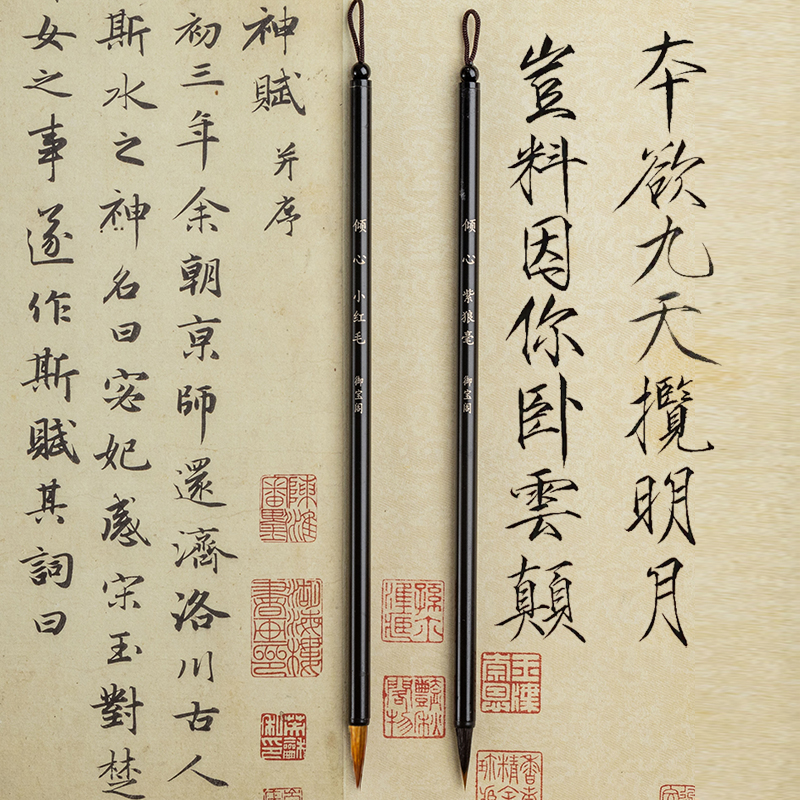 本欲九天攬明月
豈料因你卧雲顛
倾心 紫狼毫 御宝阁
倾心 小红毛 御宝阁
神賦 并序
初三年余朝京師還濟洛川古人
斯水之神名曰宓妃感宋玉對楚
女之事遂作斯賦其詞曰